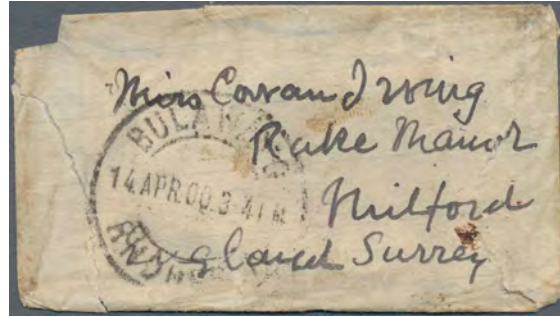 Miss Cowan Irving
Rake Manor
Milford
England Surrey
BULAWAYO
14 APR.00.3